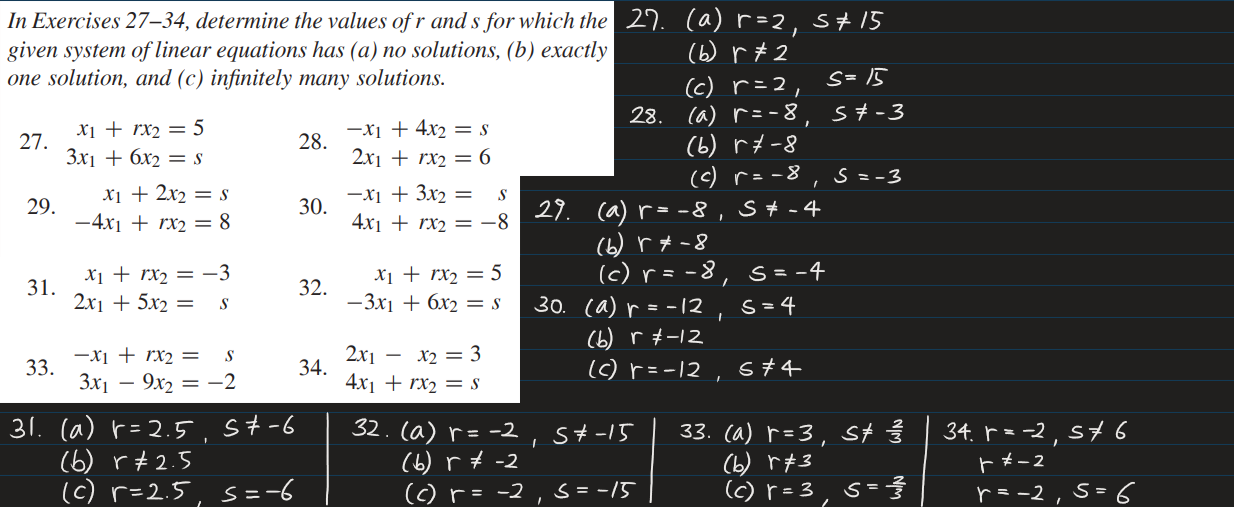 In Exercises 27–34, determine the values of r and s for which the
given system of linear equations has (a) no solutions, (b) exactly
one solution, and (c) infinitely many solutions.
27. x₁ + rx₂ = 5
3x₁ + 6x₂ = s
28. −x₁ + 4x₂ = s
2x₁ + rx₂ = 6
29. x₁ + 2x₂ = s
−4x₁ + rx₂ = 8
30. −x₁ + 3x₂ = s
4x₁ + rx₂ = −8
31. x₁ + rx₂ = −3
2x₁ + 5x₂ = s
32. x₁ + rx₂ = 5
−3x₁ + 6x₂ = s
33. −x₁ + rx₂ = s
3x₁ − 9x₂ = −2
34. 2x₁ − x₂ = 3
4x₁ + rx₂ = s
27. (a) r=2, s≠15
(b) r≠2
(c) r=2, s=15
28. (a) r=-8, s≠-3
(b) r≠-8
(c) r=-8, s=-3
29. (a) r=-8, s≠-4
(b) r≠-8
(c) r=-8, s=-4
30. (a) r=-12, s=4
(b) r≠-12
(c) r=-12, s≠4
31. (a) r=2.5, s≠-6
(b) r≠2.5
(c) r=2.5, s=-6
32. (a) r=-2, s≠-15
(b) r≠-2
(c) r=-2, s=-15
33. (a) r=3, s≠2/3
(b) r≠3
(c) r=3, s=2/3
34. r=-2, s≠6
r≠-2
r=-2, s=6